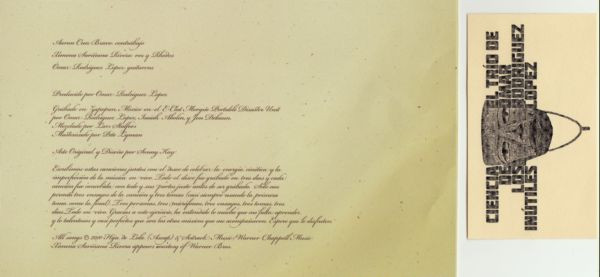 Aaron Cruz Bravo: contrabajo
Ximena Sariñana Rivera: voz y Rhodes
Omar Rodriguez Lopez: guitarras
Producido por Omar Rodriguez Lopez
Grabado en Zapopan, Mexico en el E-Clat Morgüe Portable Disaster Unit
por Omar Rodriguez Lopez, Isaiah Abolin, y Jon Debaun
Mezclado por Lars Stalfors
Masterizado por Pete Lyman
Arte Original y Diseño por Sonny Kay
Escribimos estas canciones juntos con el deseo de celebrar la energia cinética y la
imperfección de la musica en vivo. Todo el disco fue grabado en tres dias y cada
cancion fue inventada con todo y sus partes justo antes de ser grabada. Solo nos
permiti tres ensayos de la cancion y tres tomas (casi siempre usando la primera
toma como la final). Tres personas, tres marifonos, tres ensayos, tres tomas, tres
dias. Todo en vivo. Gracias a esto aprecio, he entendido lo mucho que me falta aprender
y lo talentosos y casi perfectos que son los otros musicos que me acompañaron. Espero que lo disfruten.
All songs © 2010 Hija de Lola (Ascap) & Sotrock Music/Warner Chappell Music
Ximena Sariñana Rivera appears courtesy of Warner Bros.
EL TRÍO DE
OMAR
RODRIGUEZ
LOPEZ
CIENCIA
DE
LOS
INÚTILES